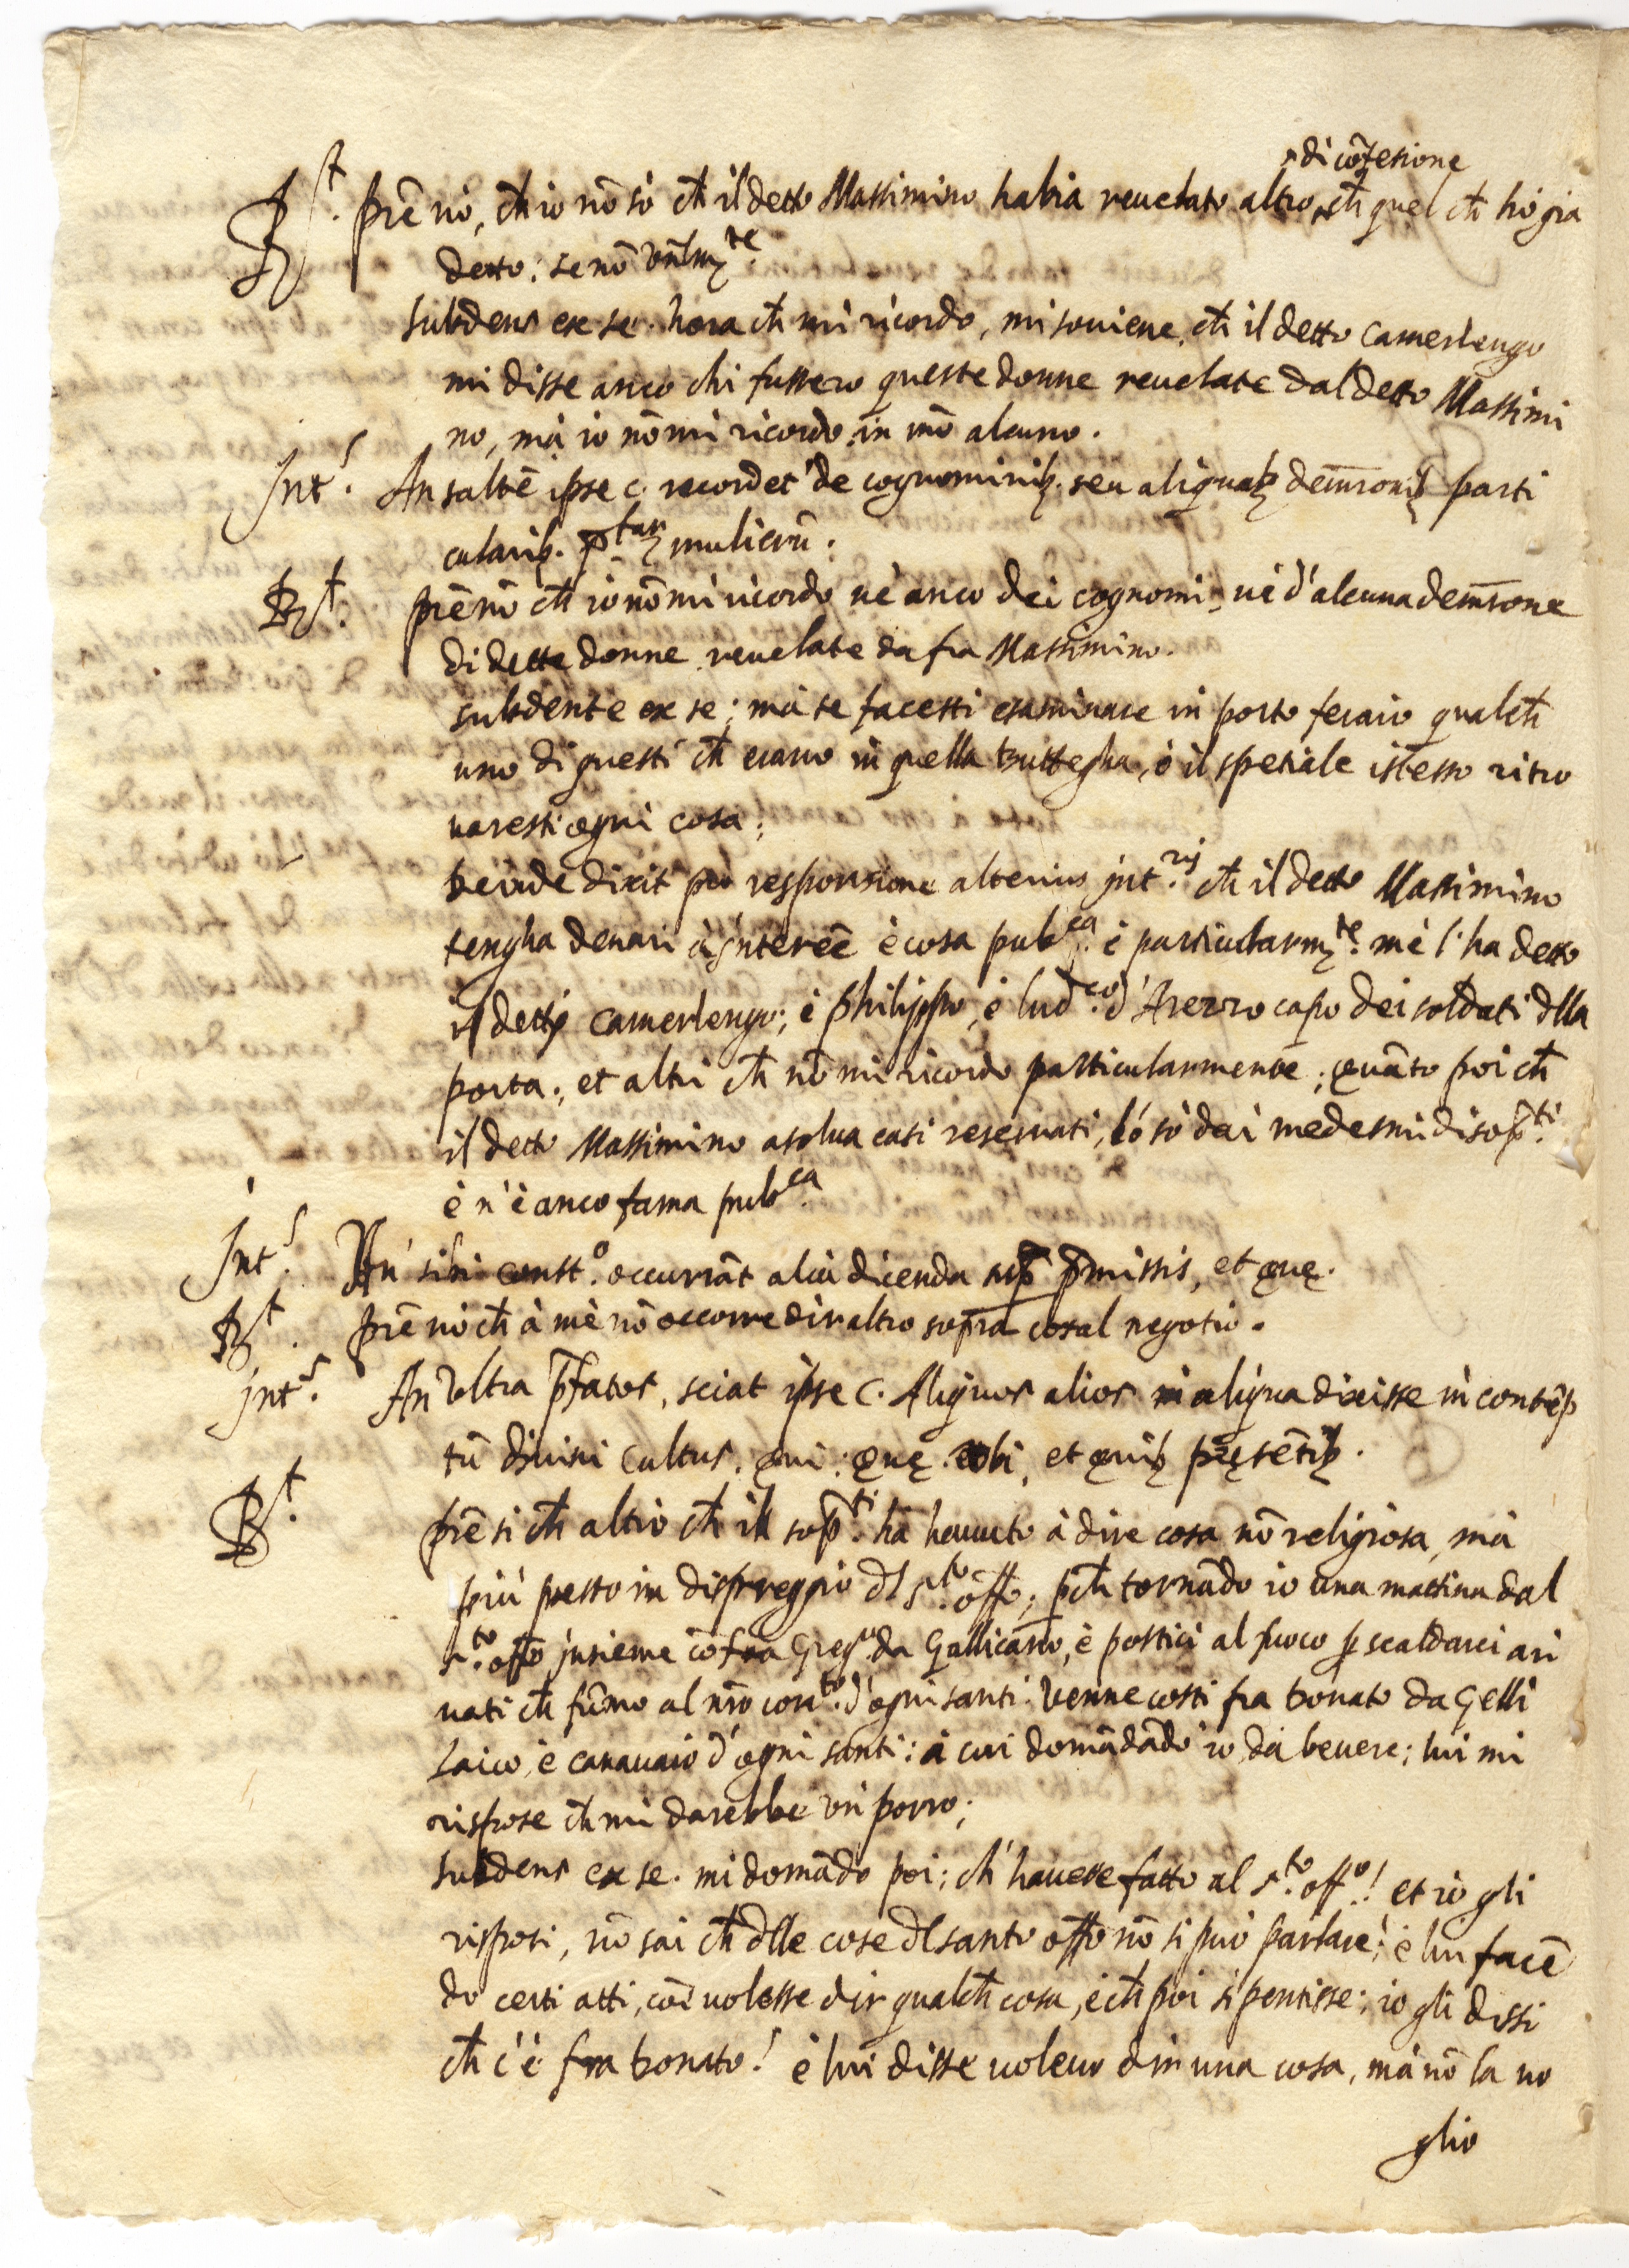 di cõfesione
R.t prẽ nò, ch̃ io nõ sò ch̃ il detto Massimino habia reuelato altro, ch̃ quel ch̃ hò gia
detto: se nõ
subdens ex se. hora ch̃ mi ricordo, mi souiene, ch̃ il detto Camerlengo
mi disse anco chi fussero queste donne reuelate dal detto Massimi
no, mà io nõ mi ricordo in mõ alcuno.
Int.s An saltẽ ipse c. recordet' de cognominib. seu aliquab demr̃onib parti
cularib. mulierũ.
R.t prẽ nò ch̃ io nõ mi ricordo nè anco dei cognomi, nè d'alcuna demr̃one
di dette donne reuelate da fra Massimino.
subdente ex se; mà se facessi esaminare in porto feraio qualch̃
uno di questi ch̃ erano in quella buttegha, ò il spetiale istesso ritro
uaresti ogni cosa;
deinde dixit pro responsione alterius int.rij ch̃ il detto Massimino
tengha denari à interẽe è cosa pub.ca è particularm.te mè l'ha detto
il detto Camerlengo; è Philippo, è Lud.co d'Arezzo capo dei soldati dlla
porta; et altri ch̃ nõ mi ricordo particularmente; quãto poi ch̃
il detto Massimino asolua casi reseruati, lò sò dai medesmi di sop.ti
è n'è anco fama pub.ca
Int.s An' sibi const.o occurrãt alia dicenda sup p̃missis, et quę.
R.t prẽ nò ch̃ à mè nõ occorre dir altro sopra cosal negotio.
Int.s An Vltra p̃fatos, sciat ipse c. Aliquos alios aliqua dixisse in contẽp
tũ diuini cultus, qui: quę. Vbi, et quib pręsẽtib.
R.t prẽ sì ch̃ altro ch̃ il sop.ti hà hauuto à dire cosa nõ religiosa, mà
più presto in dispreggio dl s.to offo; pch̃ tornãdo io una mattina dal
s.to offo insieme cõ fra Greg.o da Gallicano, è postici al fuoco p scaldarci ari
uati ch̃ fũmo al nrõ con.to d'ogni santi: Venne costi fra Donato da Gelli
Laico, è canauaio d'ogni santi: à cui domãdãdo io da beuere; lui mi
rispose ch̃ mi darebbe un porro;
subdens ex se. mi domãdò poi; ch' hauesse fatto al s.to off.o! et io gli
risposi, nõ sai ch̃ dlle cose dl santo offo nõ si può parlare; è lui facẽ
do certi atti, coĩ uolesse dir qualch̃ cosa, è ch̃ poi si pentisse; io gli dissi
ch̃ c'è fra Donato! è lui disse uoleuo dir una cosa, mà nõ la uo
glio